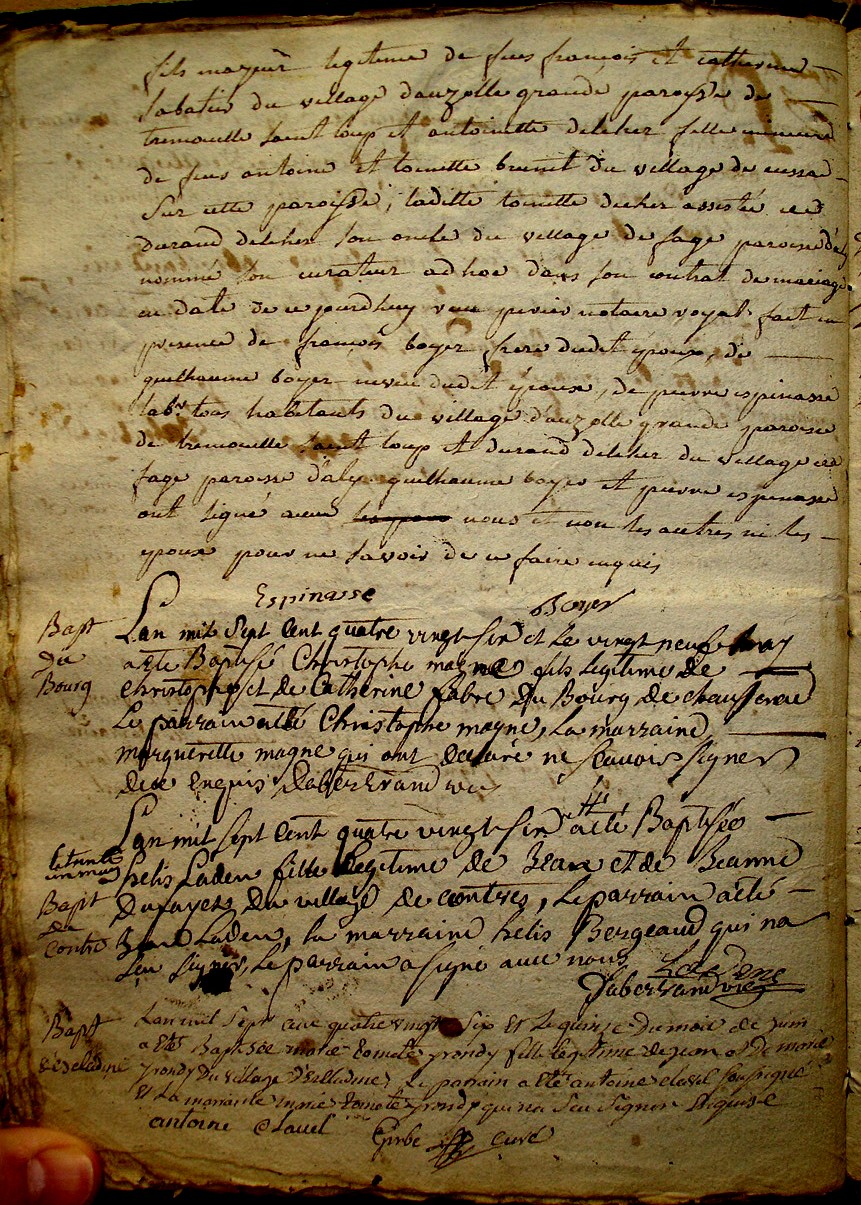 fils mayeur legitime de feus françois et catherine
sabatier du village dauzolle grande paroisse de
tremouille saint loup et antoinette delcher fille mineure
de feus antoine et toinette brunet du village de cussac
sur cette paroisse, laditte toinette delcher assistée de
durand delcher son oncle du village de fage paroisse d'aly
nommé son curateur adhoc dans son contrat de mariage
en date de ce jourdhuy notaire royal fait en
presence de françois boyer frere dudit epoux, de
guilhaume boyer neveu dudit epoux, de pierre espinasse
labr tous habitants du village d'auzolle grande paroisse
de tremouille saint loup et durand delcher du village de
fage paroisse d'aly guilhaume boyer et pierre espinasse
ont signé avec nous et non les autres ni les
epoux pour ne savoir de ce faire enquis
Espinasse Boyer
Bapt
du
Bourg
Lan mil sept cent quatre vingt six et le vingt neuf may
a eté Baptisé Christophe magne fils legitime de
christophe et de Catherine fabre du Bourg de chaussenac
Le parrain a été Christophe magne, La marraine
marguerette magne qui ont declaré ne scavoir signer
de ce Enquis Dabertrand vic
Lan mil sept cent quatre vingt six a été Baptisée
le trente
un may
helis Laden fille Legitime de Jean et de Jeanne
Bapt
de
Contre
Dufayet du village de contres, Le parrain a été
Jean Laden, la marraine helis Bergeaud qui na
seu signer, Le parrain a signé avec nous
Ladene
Dabertrand vic
Bapt
d'Escladine
Lan mil sept cent quatre vingt six et le quinze du mois de juin
a eté Baptisée marie tomete grandy fille legitime de jean et de marie
grandy du village d'Escladine, Le parrain a eté antoine clavel soussigné
et La marraine marie tomete grandy qui na seu signer Requise
antoine Clavel Girbe curé